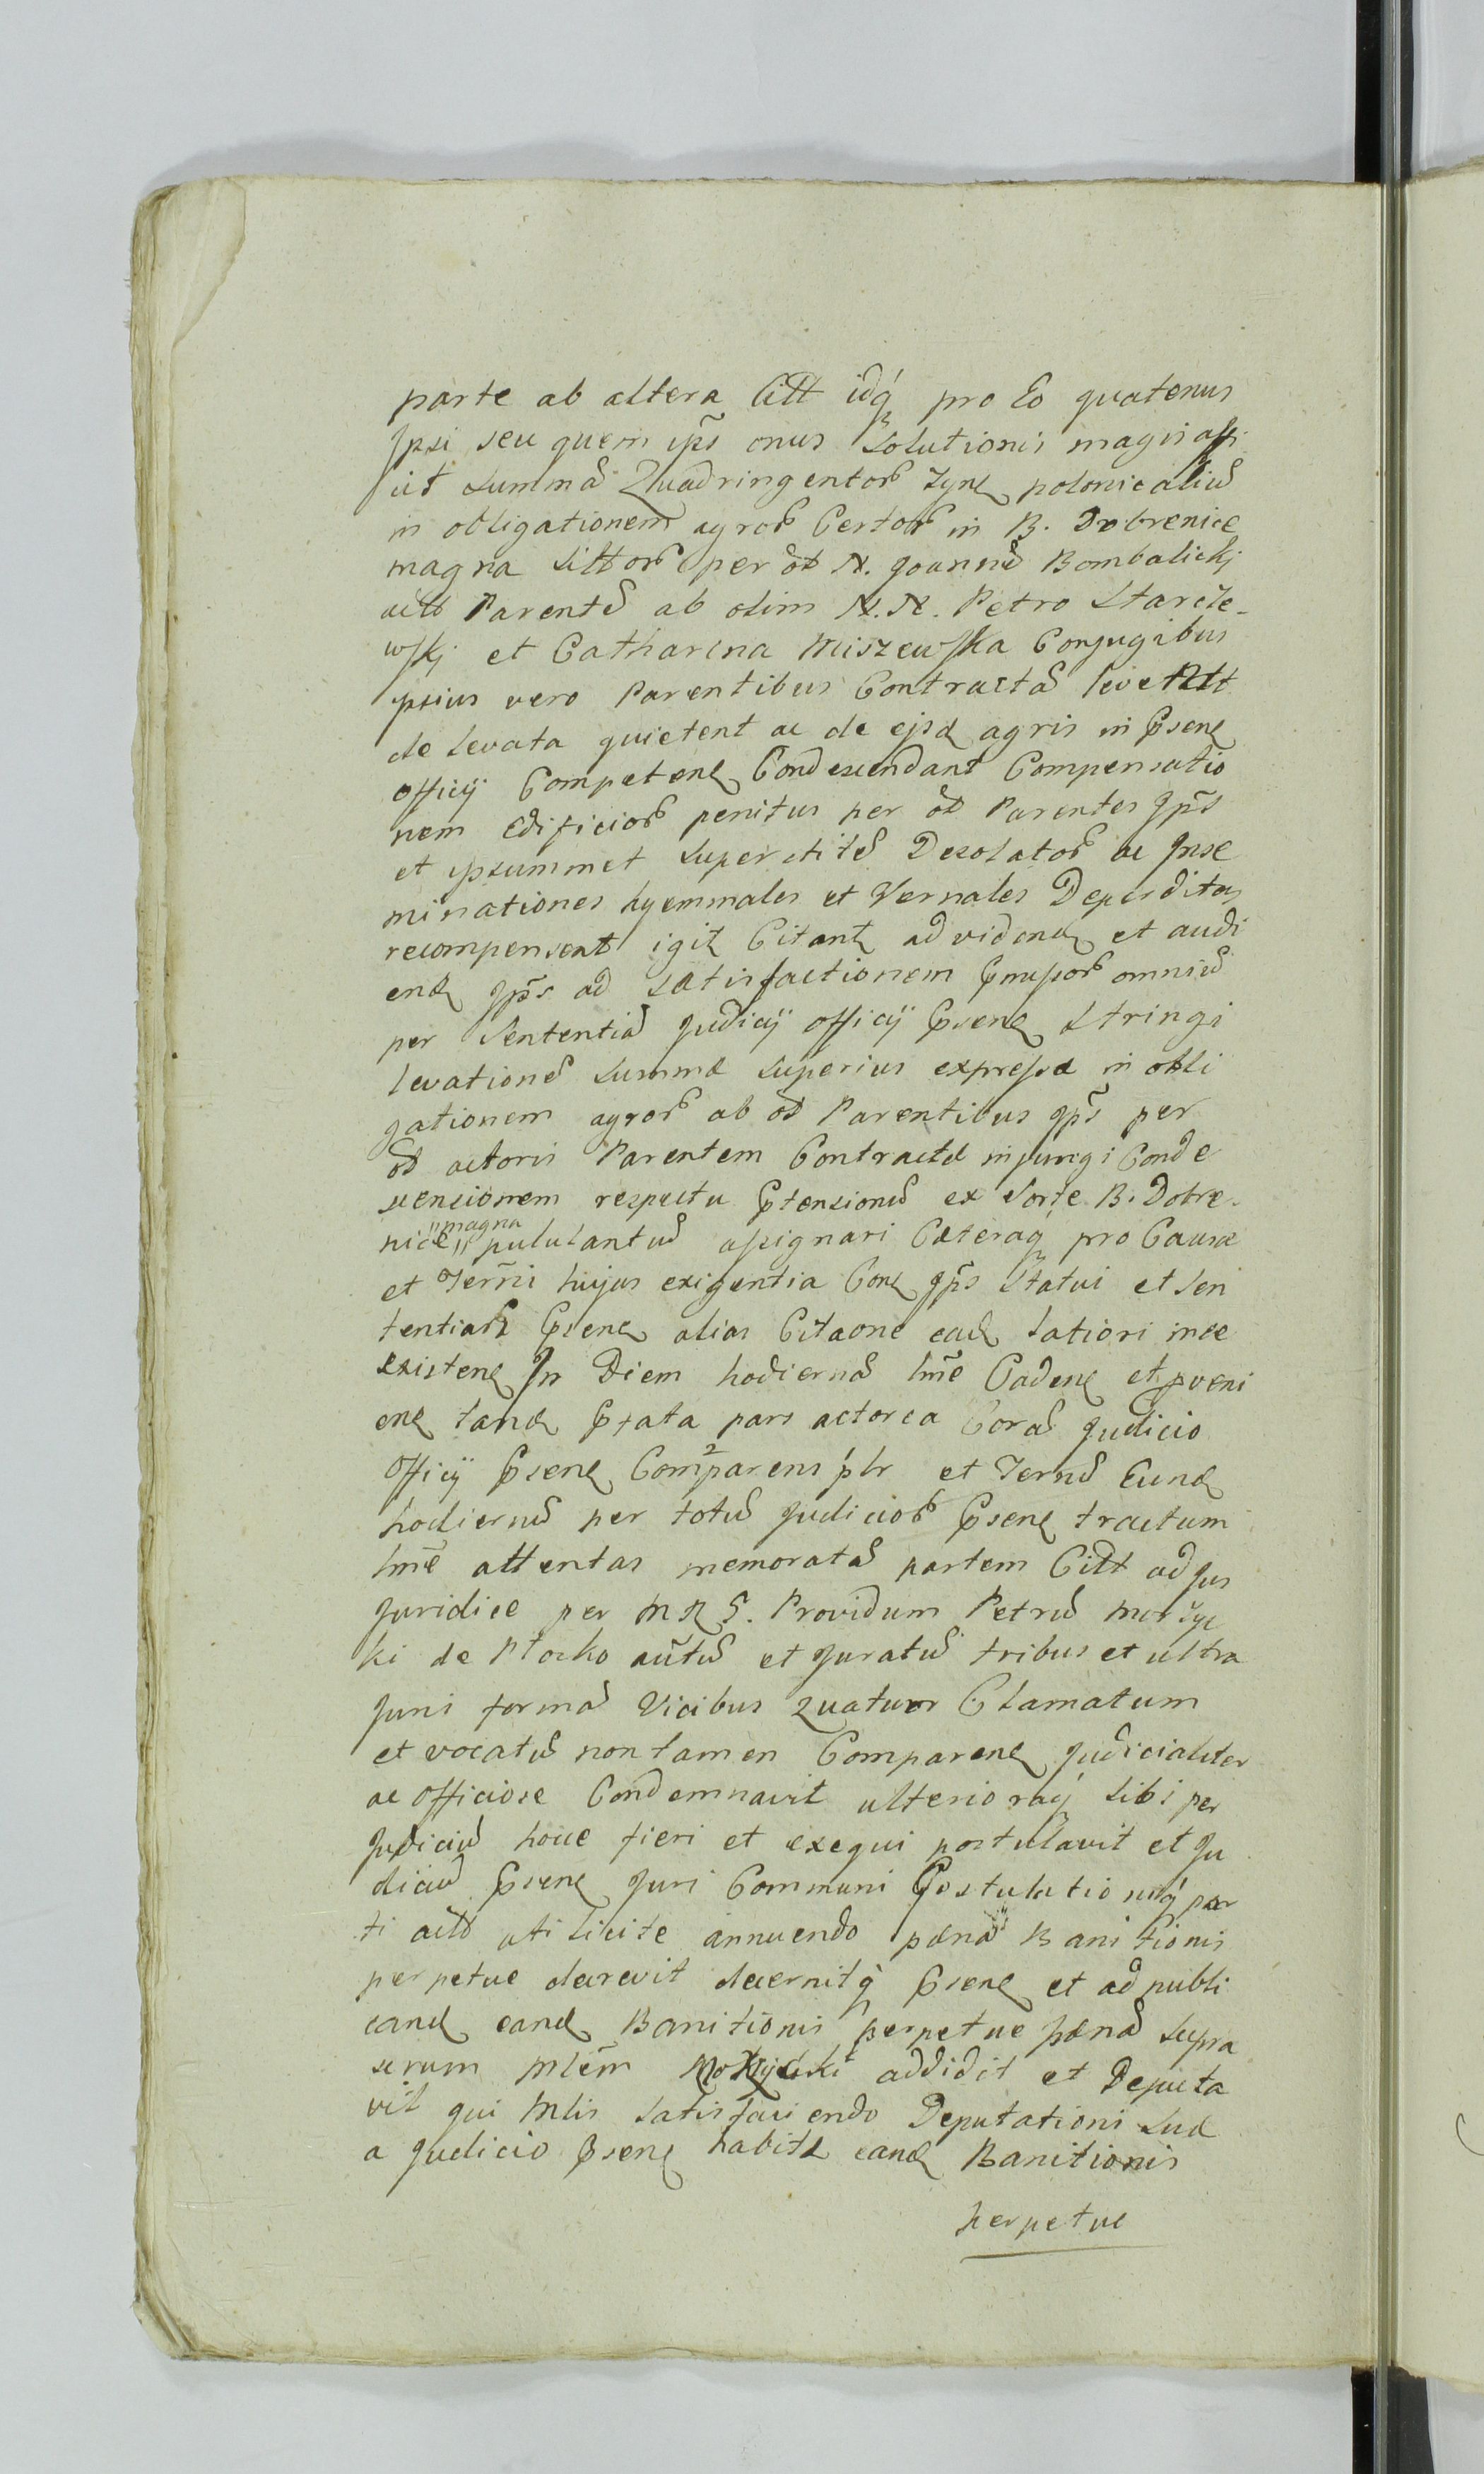 parte ab altera Citt idq pro Eo quatenus
Ipsi seu quem ips onus Solutionis magis affi
cit Summa Quadringentor Tyne polonicaliu
in obligationem agror Certor in B. Dobrenice
magna Sittor per od N. Joanne Bombalickj
acto Parente ab olim N. N. Petro Starcze-
wskj et Catharina Miszewska Conjugibus
ipsius vero Parentibus Contracta levent
de levata quietent ac de ejsd agris in Psene
officij Competene Condescendant Compensatio
nem Edificior penitus per od Parentes Jps
et ipsummet Superstite Desolator ac Inse
minationes hyemmales et Vernales Deperditas
recompensent igit Citant ad vidend et audi
end Jps ad Satisfactionem Pmissor omniu
per Sententia Judicij officij Psene Stringi
levatione Summæ Superius expressæ in obli
gationem agror ab od Parentibus Jps per
od actoris Parentem Contractæ injungi Conde
scensionem respectu Ptensionu ex Sorte B. Dobre-
nice "magna" pululantu assignari Cæteraq pro Causæ
et Termi hujus exigentia Cone Jps Statui et Sen
tentiari Psene alias Citaone ead latiori inee
Existene In Diem hodierna lme Cadene et pveni
ene tand Pfata pars actorea Cora Judicio
Officij Psene Comparens plr et Ternu Eund
hodiernu per totu Judicior Psene tractum
lme attentas memorata partem Citt ad Jus
Juridice per M R S. Providum Petru
ki de Plocko autu et Juratu tribus et ultra
Juris forma Vicibus quatuor Clamatum
et vocatu non tamen Comparene Judicialiter
ac Officiose Condemnavit ulterioraq Sibi per
Judiciu hocce fieri et exequi postulavit et Ju
diciu Psene Juri Communi Postulationiq par
ti acto uti licite annuendo pæna Banitionis
perpetue decrevit decernitq Psene et ad publi
cand eand Banitionis perpetue pæna Supra
scrum Mlem addidit et Deputa
vit qui Mlis Satisfaciendo Deputationi Suæ
a Judicio Psene habitæ eand Banitionis
perpetue